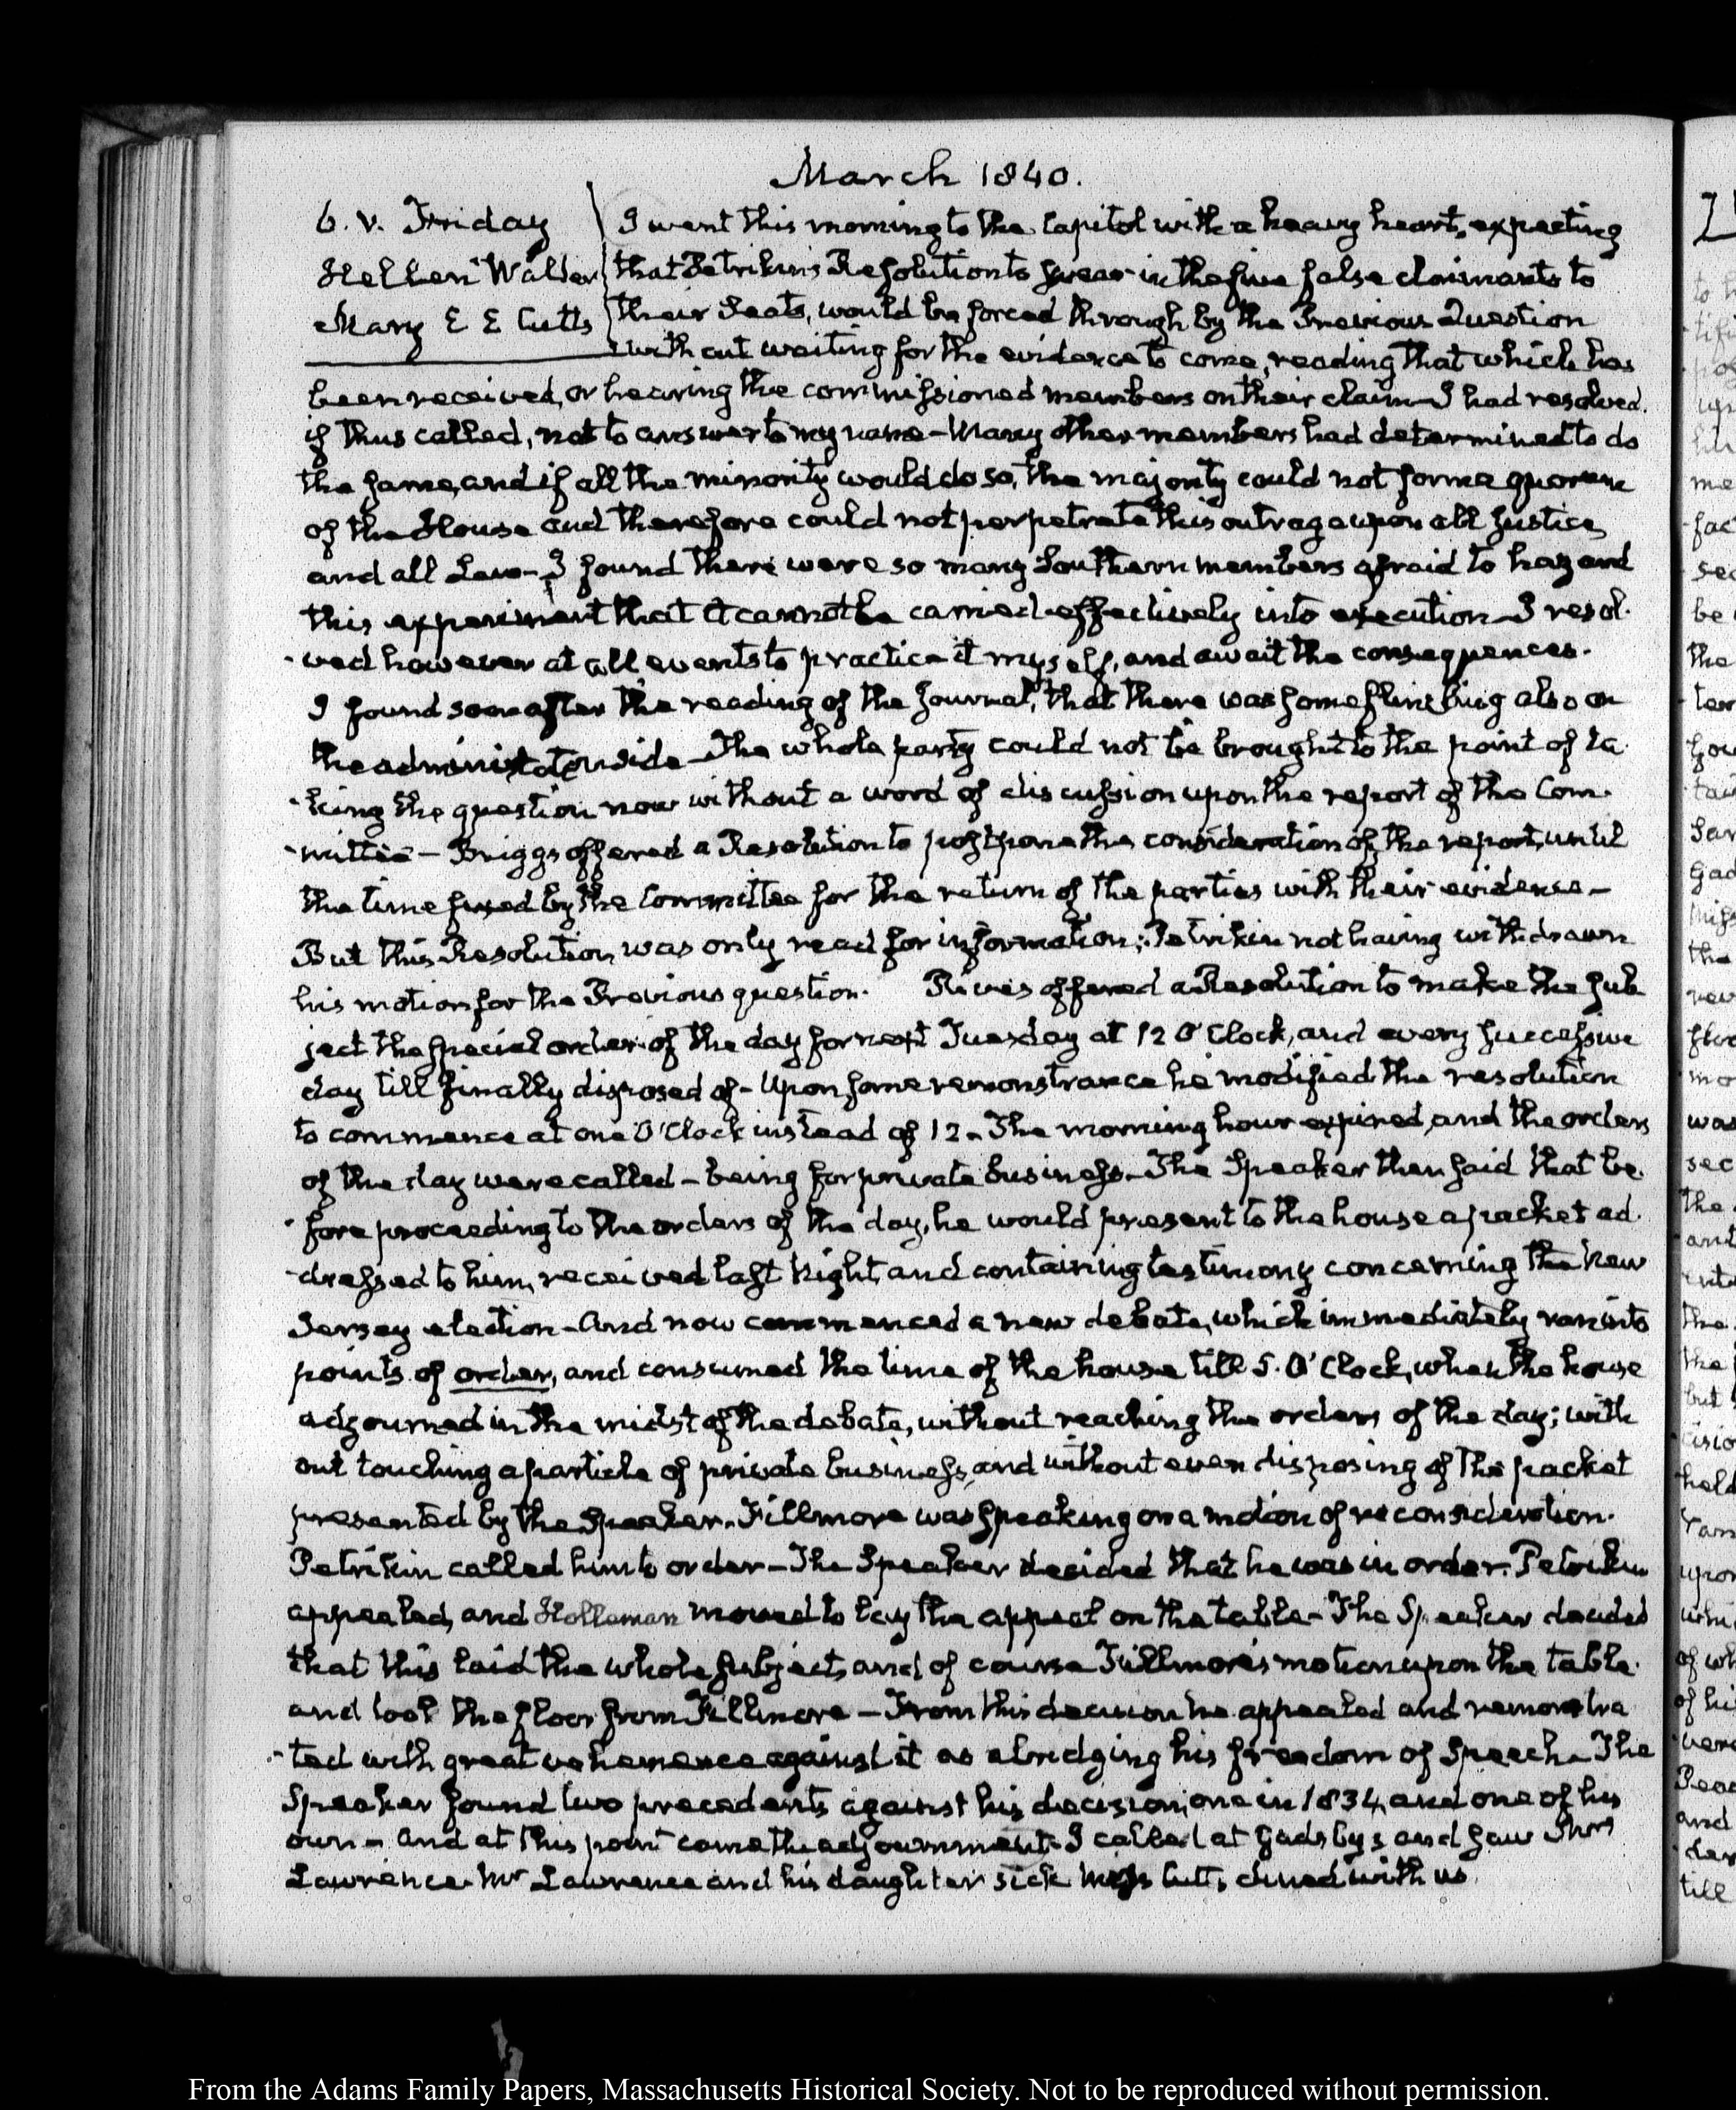 March 1840.
6. V. Friday
Hellen Walter
Mary E E Cutts
I went this morning to the Capitol with a heavy heart, expecting
that Petrikin's Resolution to swear in the five false claimants to
their Seats, would be forced through by the Previous Question
without waiting for the evidence to come, reading that which has
been received, or hearing the commissioned members on their claim. I had resolved
if thus called, not to answer to my name – Many other members had determined to do
the same, and if all the minority would do so, the majority could not form a quorum
of the House and therefore could not perpetrate this outrage upon all Justice,
and all Law – I found there were so many Southern members afraid to hazard
this experiment that it cannot be carried effectively into execution – I resol-
-ved however at all events to practice it myself, and await the consequences.
I found soon after the reading of the Journal, that there was some flinching also on
the administration side – The whole party could not be brought to the point of ta-
-king the question now without a word of discussion upon the report of the Com-
-mittee – Briggs offered a Resolution to postpone the consideration of the report, until
the time fixed by the Committee for the return of the parties with their evidence –
But this Resolution was only read for information; Petrikin not having withdrawn
his motion for the Previous question. Rives offered a Resolution to make the sub
ject the special order of the day for next Tuesday at 12 O'Clock, and every successive
day till finally disposed of – Upon some remonstrance he modified the resolution
to commence at one O'Clock instead of 12. The morning hour expired, and the orders
of the day were called – being for private business. The Speaker then said that be-
-fore proceeding to the orders of the day, he would present to the house a packet ad-
-dressed to him, received last Night, and containing testimony concerning the New
Jersey election – And now commenced a new debate, which immediately ran into
points of order, and consumed the time of the house till 5. O'Clock, when the house
adjourned in the midst of the debate, without reaching the orders of the day; with
out touching a particle of private business, and without even disposing of the packet
presented by the Speaker. Fillmore was speaking on a motion of reconsideration.
Petrikin called him to order – The Speaker decided that he was in order. Petrikin
appealed, and Holleman moved to lay the appeal on the table – The Speaker decided
that this laid the whole subject, and of course Fillmore's motion upon the table.
and took the floor from Fillmore – From this decision he appealed and remonstra
-ted with great vehemence against it as abridging his freedom of Speech. The
Speaker found two precedents against his decision, one in 1834, and one of his
own – and at this point came the adjournment. I called at Gadsby's and saw Mrs
Lawrence. Mr Lawrence and his daughter sick Miss Cutts dined with us.
From the Adams Family Papers, Massachusetts Historical Society. Not to be reproduced without permission.